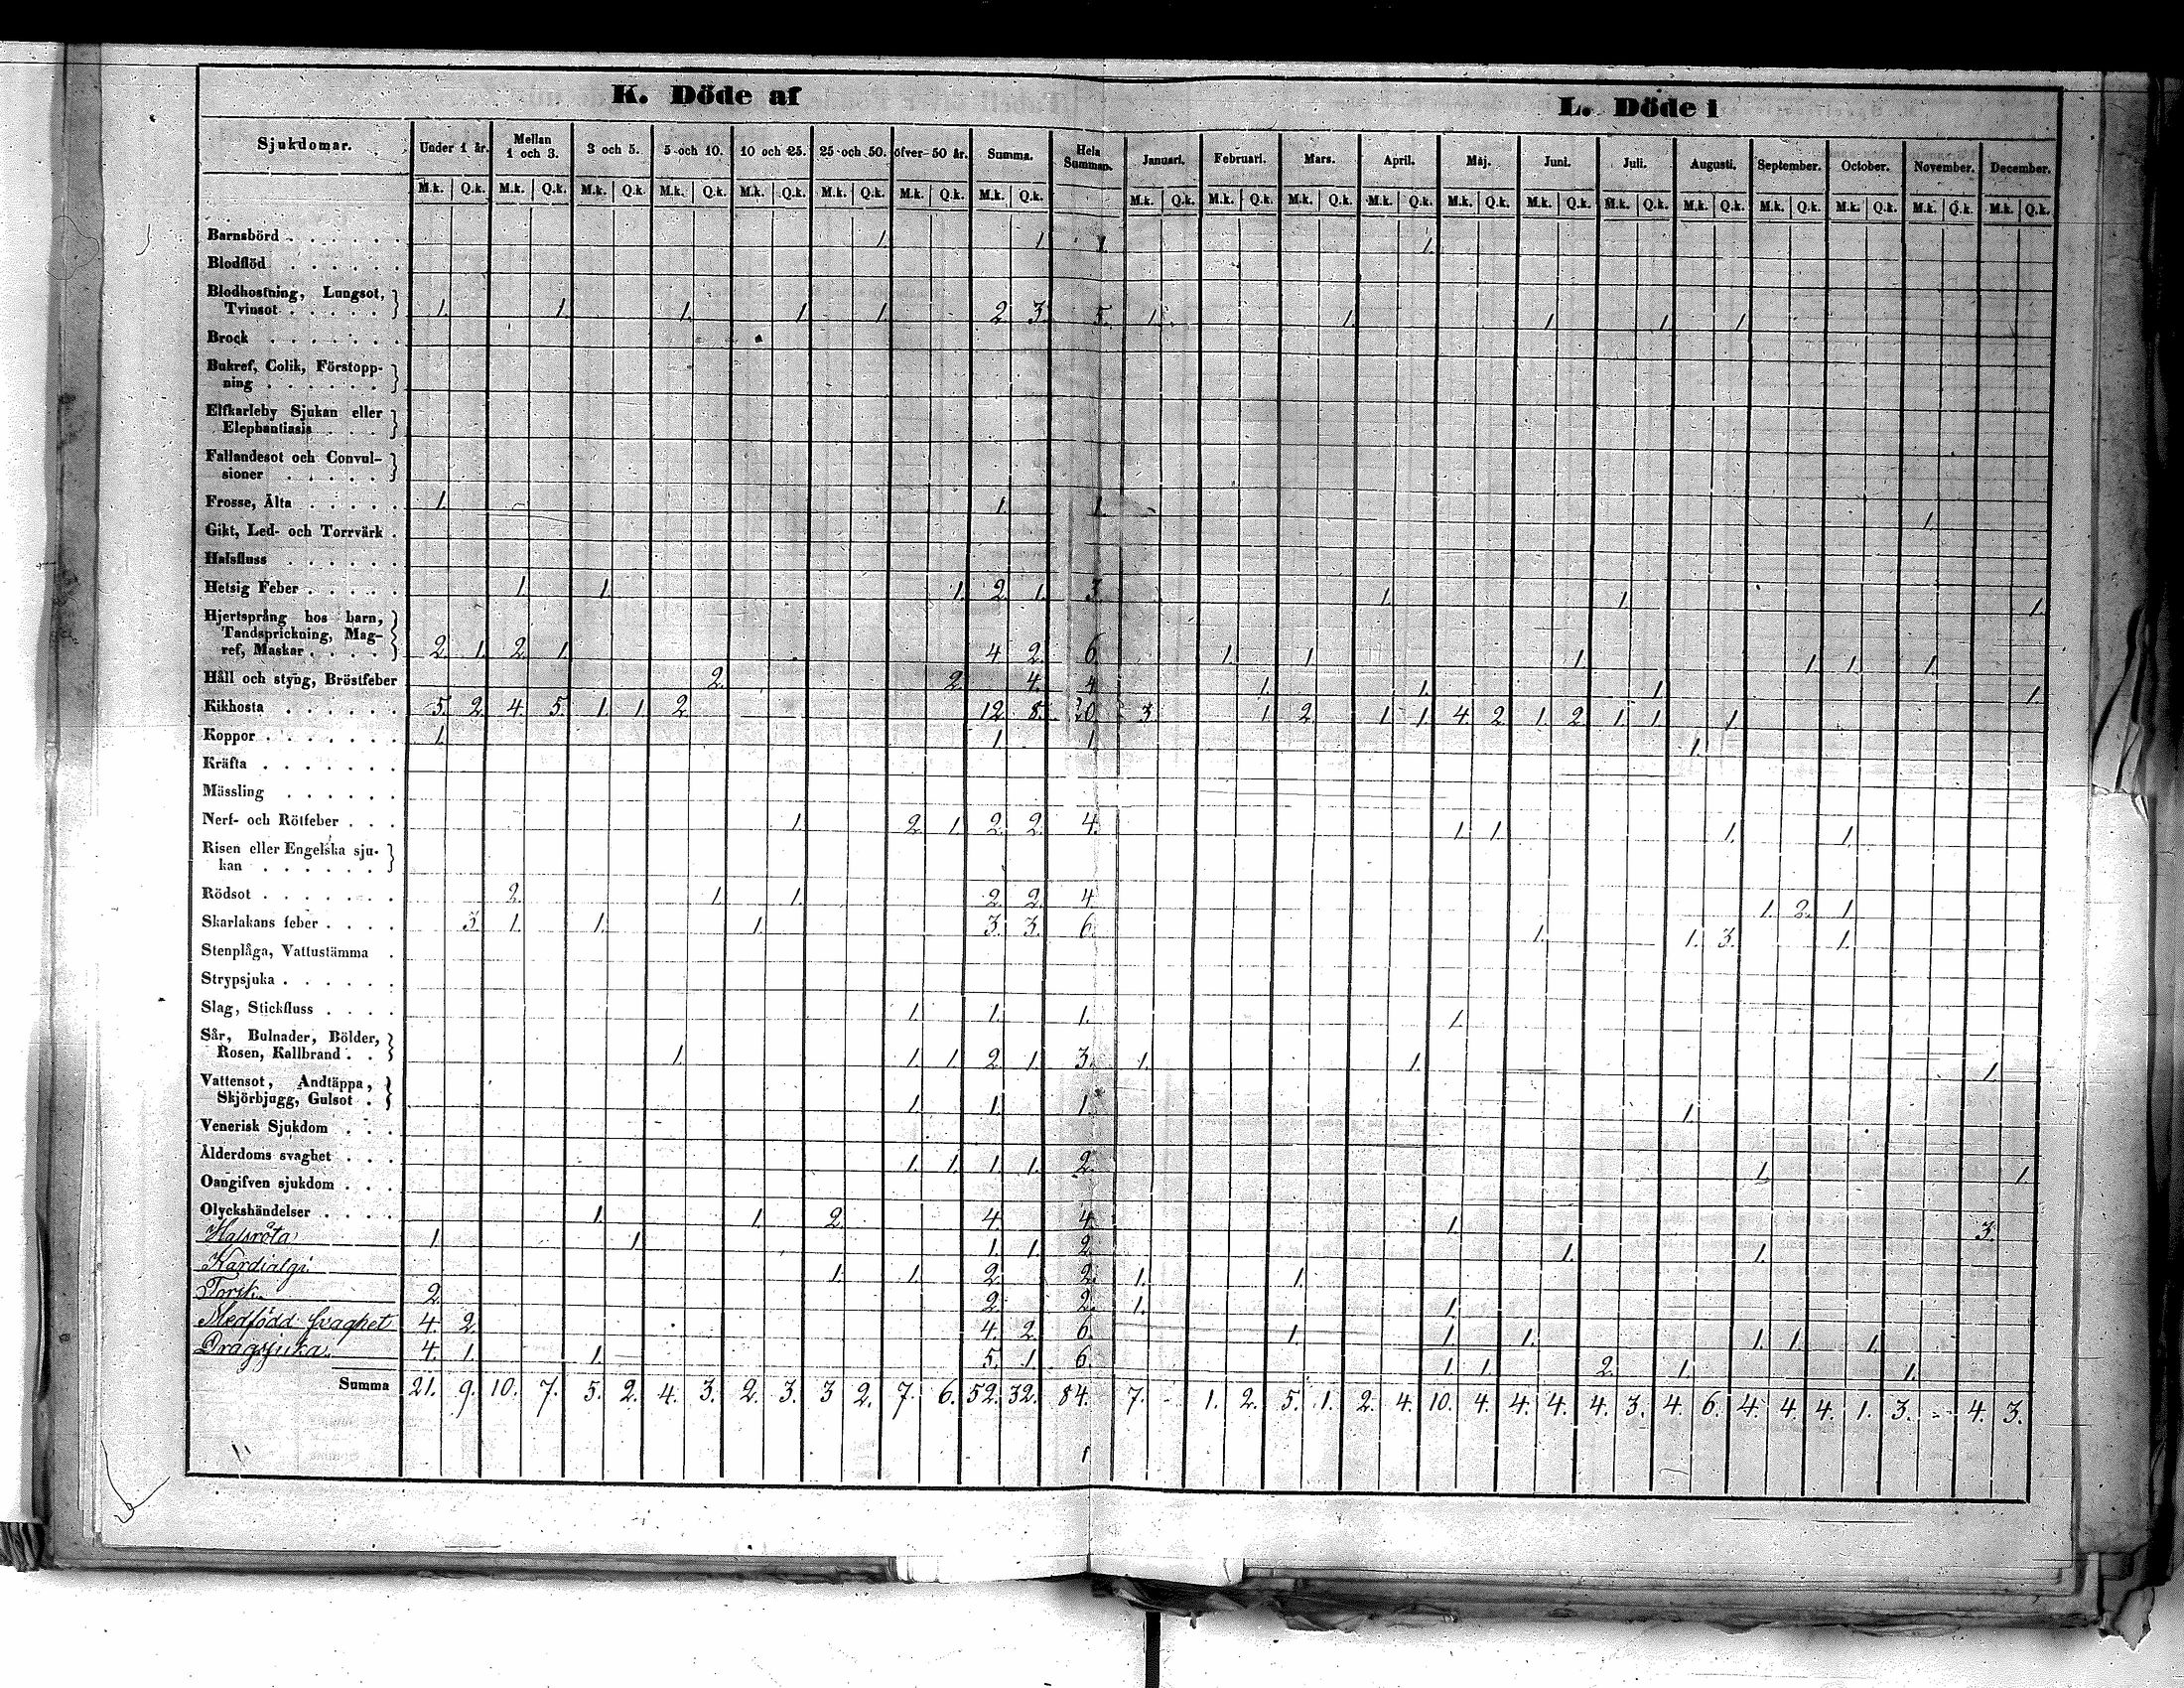 K. Döde af L. Döde i
Sjukdomar. Under 1 år. Mellan 1 och 3. 3 och 5. 5 och 10. 10 och 25. 25 och 50. öfver 50 år. Summa. Hela Summan. Januari. Februari. Mars. April. Maj. Juni. Juli. Augusti. September. October. November. December.
M.k. Q.k. M.k. Q.k. M.k. Q.k. M.k. Q.k. M.k. Q.k. M.k. Q.k. M.k. Q.k. M.k. Q.k. M.k. Q.k. M.k. Q.k. M.k. Q.k. M.k. Q.k. M.k. Q.k. M.k. Q.k. M.k. Q.k. M.k. Q.k. M.k. Q.k. M.k. Q.k. M.k. Q.k. M.k. Q.k.
Barnsbörd . . . . . . 1. 1. 1 1.
Blodflöd . . . . . .
Blodhostning, Lungsot,
Tvinsot . . . . . 1. 1. 1. 1. 1. 2. 3. 5. 1. 1. 1. 1. 1.
Brock . . . . . . .
Bukref, Colik, Förstopp-
ning . . . . . .
Elfkarleby Sjukan eller
Elephantiasis . . .
Fallandesot och Convul-
sioner . . . . .
Frosse, Älta . . . . . 1. 1. 1. 1.
Gikt, Led- och Torrvärk .
Halsfluss . . . . . .
Hetsig Feber . . . . . 1. 1. 1. 2. 1. 3. 1. 1. 1.
Hjertsprång hos barn,
Tandsprickning, Mag-
ref, Maskar . . . . 2. 1. 2. 1. 4. 2. 6. 1. 1. 1. 1. 1. 1.
Håll och styng, Bröstfeber 2. 2. 4. 4. 1. 1. 1. 1.
Kikhosta . . . . . . 5. 2. 4. 5. 1. 1. 2. 12. 8. 20. 3. 1. 2. 1. 1. 4. 2. 1. 2. 1. 1. 1.
Koppor . . . . . . . 1. 1. 1. 1.
Kräfta . . . . . . .
Mässling . . . . . .
Nerf- och Rötfeber . . . 1. 2. 1. 2. 2. 4. 1. 1. 1. 1.
Risen eller Engelska sju-
kan . . . . . .
Rödsot . . . . . . . 2. 1. 1. 2. 2. 4. 1. 2. 1.
Skarlakans feber . . . . 3. 1. 1. 1. 3. 3. 6. 1. 1. 3. 1.
Stenplåga, Vattustämma .
Strypsjuka . . . . . .
Slag, Stickfluss . . . . 1. 1. 1. 1.
Sår, Bulnader, Bölder,
Rosen, Kallbrand . . 1. 1. 1. 2. 1. 3. 1. 1. 1.
Vattensot, Andtäppa,
Skjörbjugg, Gulsot . 1. 1. 1. 1.
Venerisk Sjukdom . . .
Ålderdoms svaghet . . . 1. 1. 1. 1. 2. 1. 1.
Oangifven sjukdom . . .
Olyckshändelser . . . . 1. 1. 2. 4. 4. 1. 3.
Halsröta 1. 1. 1. 1. 2. 1. 1.
Kardialgi 1. 1. 2. 2. 1. 1.
Torsk 2. 2. 2. 1. 1.
Medfödd svaghet 4. 2. 4. 2. 6. 1. 1. 1. 1. 1. 1.
Dragsjuka 4. 1. 1. 5. 1. 6. 1. 1. 2. 1. 1.
Summa 21. 9. 10. 7. 5. 2. 4. 3. 2. 3. 3 2. 7. 6. 52. 32. 84. 7. - 1. 2. 5. 1. 2. 4. 10. 4. 4. 4. 4. 3. 4. 6. 4. 4. 4. 1. 3. - 4. 3.